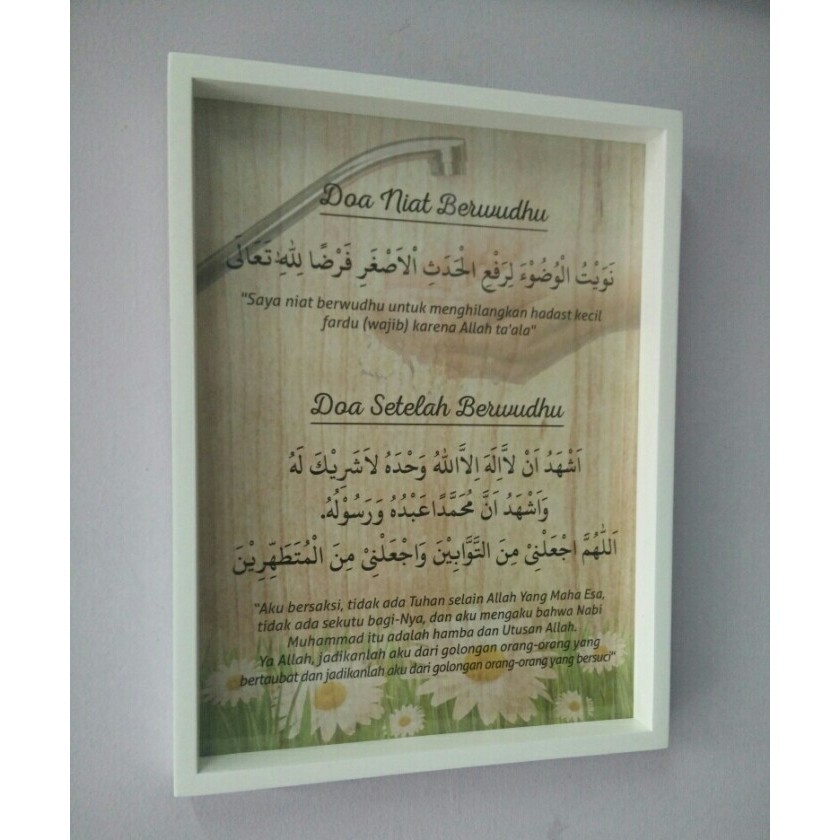 Doa Niat Berwudhu
نَوَيْتُ الْوُضُوْءَ لِرَفْعِ الْحَدَثِ اْلاَصْغَرِ فَرْضًا لِلّٰهِ تَعَالَى
"Saya niat berwudhu untuk menghilangkan hadast kecil
fardu (wajib) karena Allah ta'ala"
Doa Setelah Berwudhu
اَشْهَدُ اَنْ لاَاِلَهَ اِلاَّاللهُ وَحْدَهُ لاَشَرِيْكَ لَهُ
وَاَشْهَدُ اَنَّ مُحَمَّدًاعَبْدُهُ وَرَسُوْلُهُ.
اَللّٰهُمَّ اجْعَلْنِىْ مِنَ التَّوَّابِيْنَ وَاجْعَلْنِىْ مِنَ الْمُتَطَهِّرِيْنَ
"Aku bersaksi, tidak ada Tuhan selain Allah Yang Maha Esa,
tidak ada sekutu bagi-Nya, dan aku mengaku bahwa Nabi
Muhammad itu adalah hamba dan Utusan Allah.
Ya Allah, jadikanlah aku dari golongan orang-orang yang
bertaubat dan jadikanlah aku dari golongan orang-orang yang bersuci"